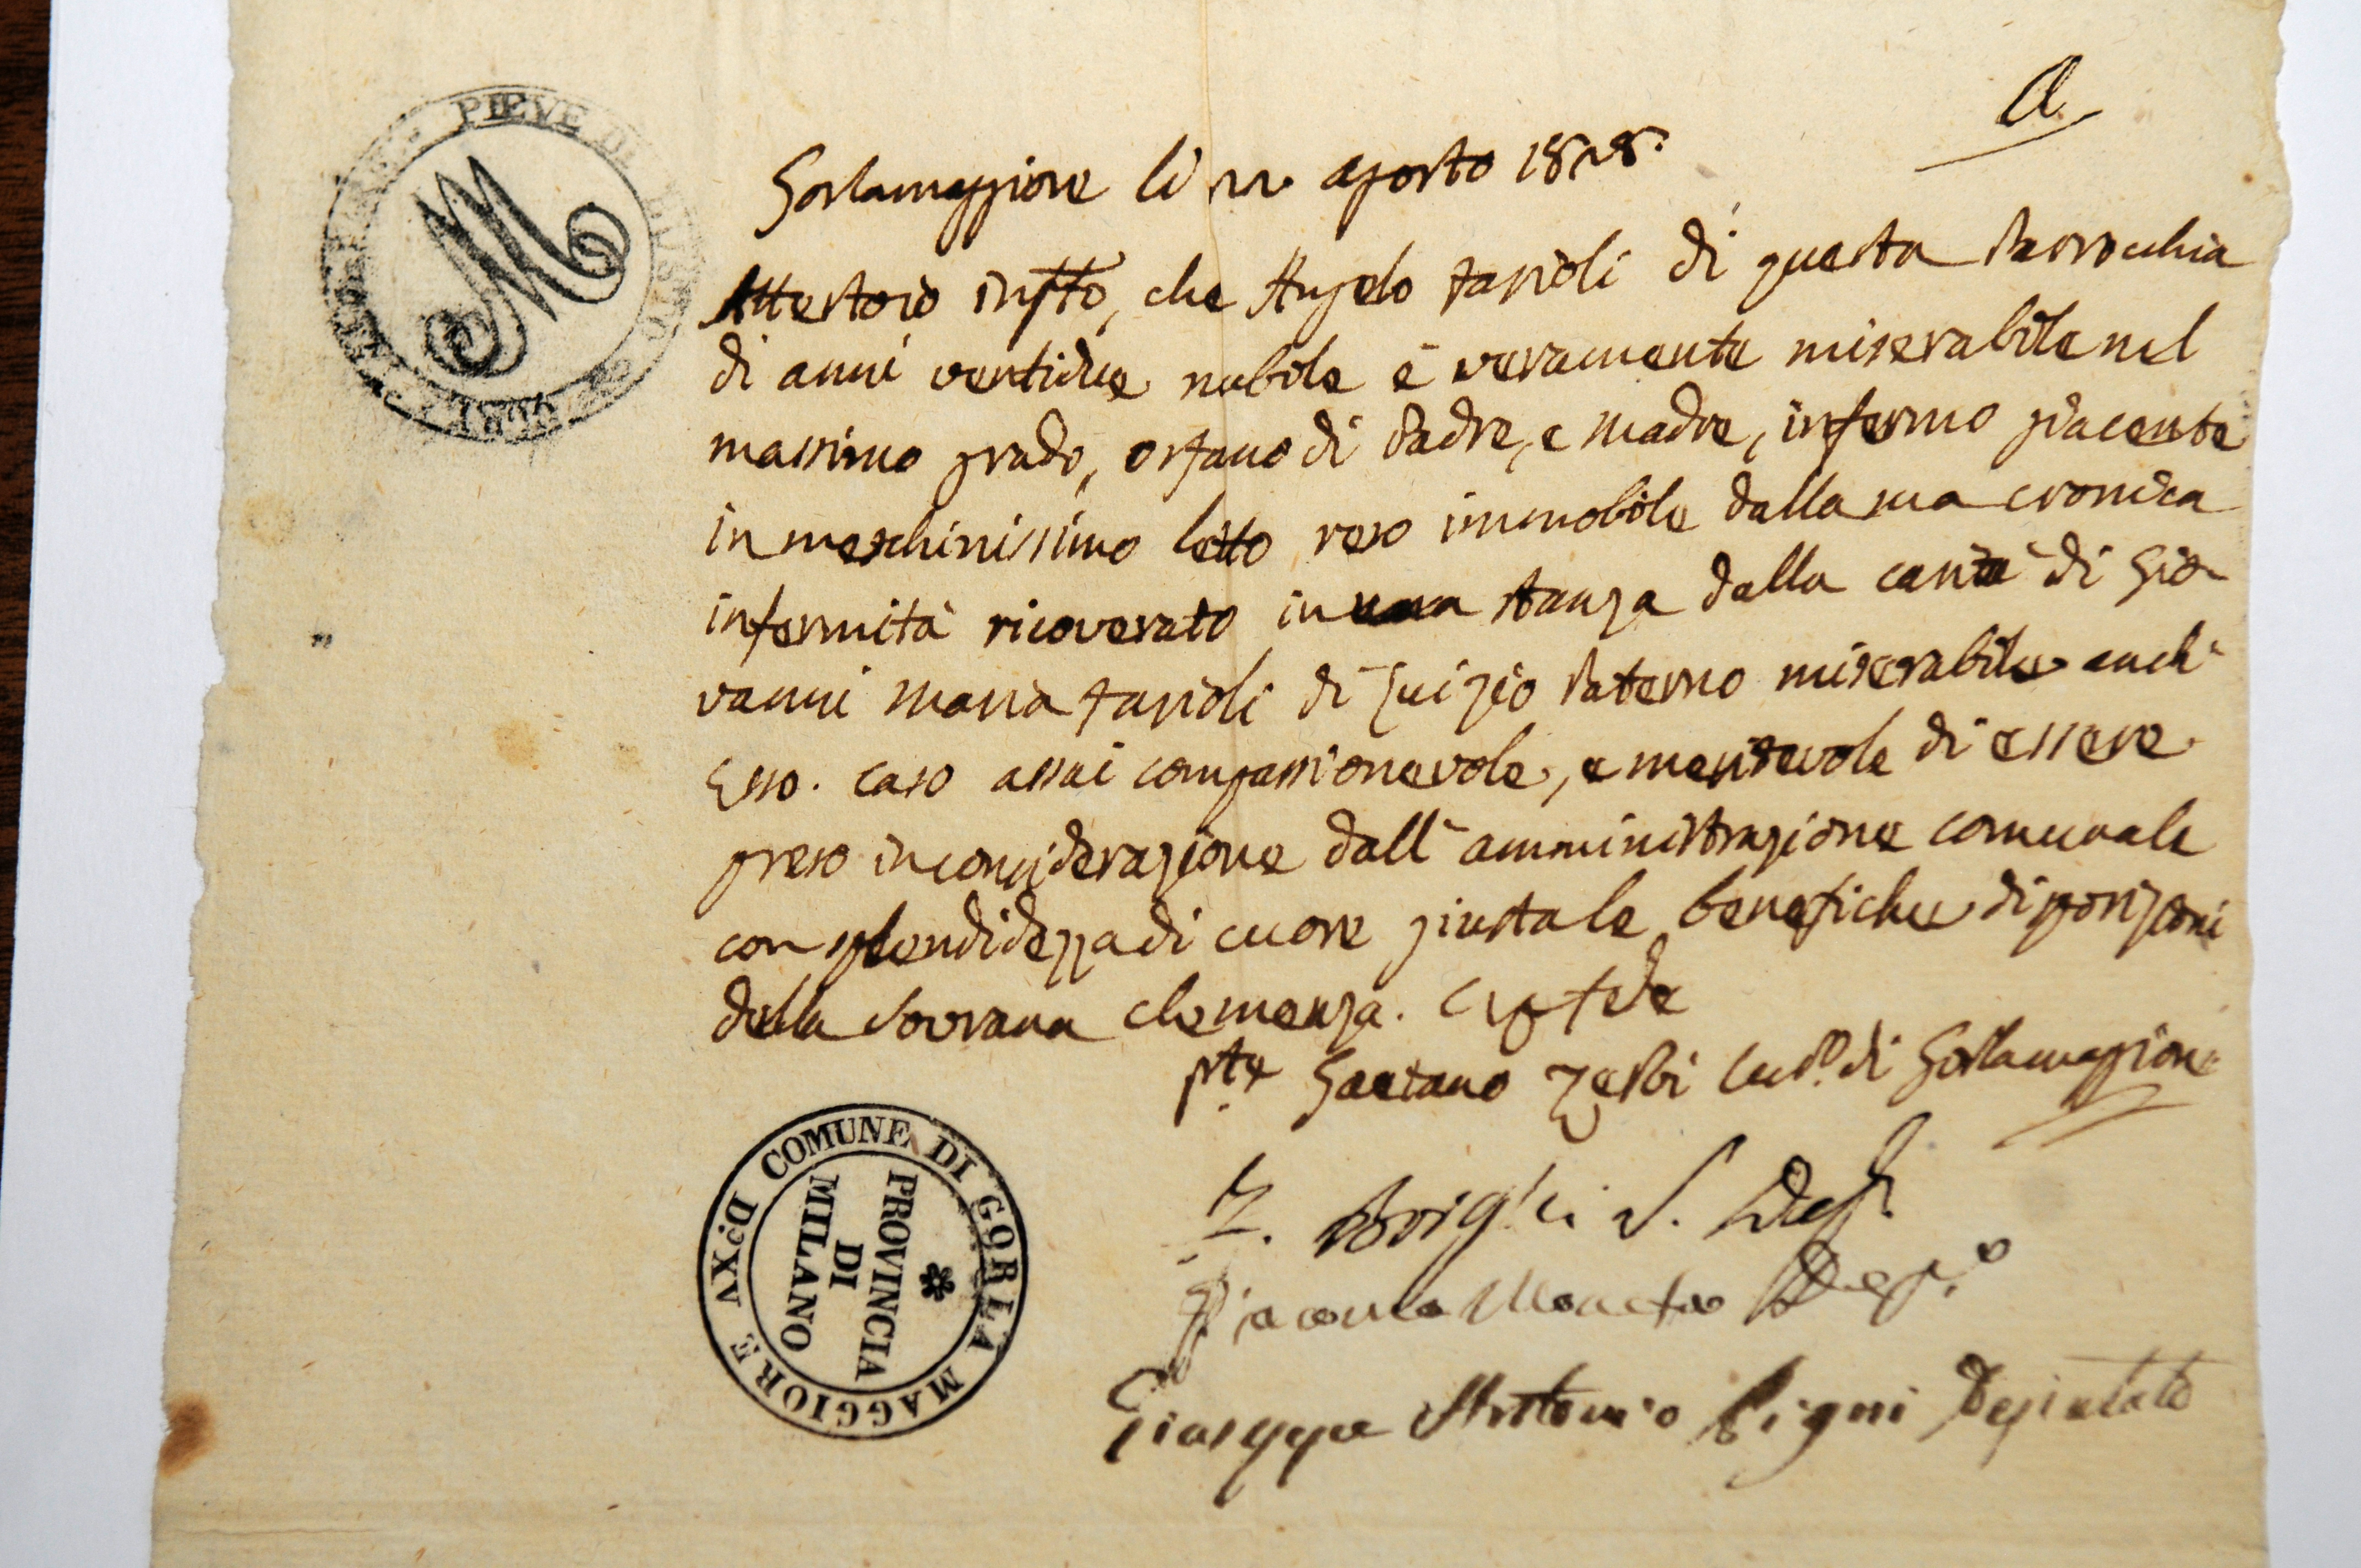 PIEVE DI BUSTO
M
a
Gorlamaggiore li 22 agosto 1828.
Attestoio inftto, che Angelo Farioli di questa Parrocchia
di anni ventidue nubile è veramente miserabile nel
massimo grado, orfano di Padre, e Madre, infermo giacente
in meschinissimo letto reso immobile dalla sua cronica
infermità ricoverato in una stanza dalla carità di Gio-
vanni Maria Farioli di suo Zio Paterno miserabile anch'
Esso. caso assai compassionevole, e meritevole di essere
preso in considerazione dall'amministrazione comunale
con splendidezza di cuore giusta le benefiche disposizioni
della Sovrana clemenza. In fede
Pte Gaetano Zerbi Cudo. di Gorlamaggiore
Deps.
Giacomo Depo.
Giuseppe Antonio Pigni Deputato
COMUNE DI GORLA MAGGIORE D.o XV
PROVINCIA
DI
MILANO